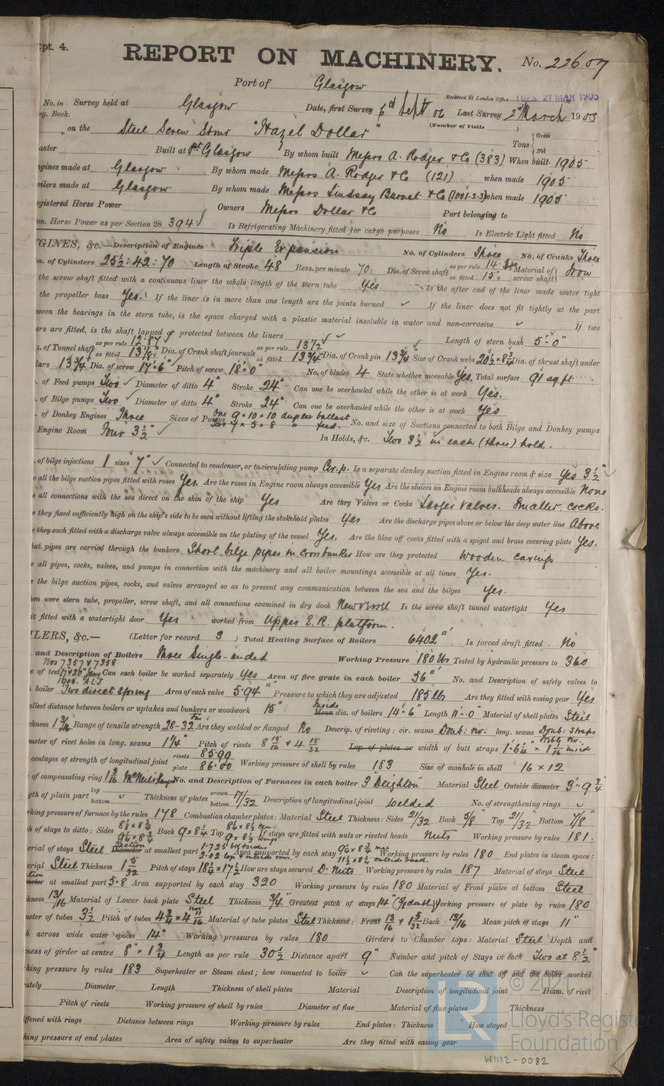 pt. 4.
REPORT ON MACHINERY. No. 22607
Port of Glasgow
Received at London Office TUES. 21 MAR 1905
No. in Survey held at Glasgow Date, first Survey Sept 02 Last Survey 2nd March 1905
eg. Book. (Number of Visits
on the Steel Screw Stmr "Hazel Dollar" Tons
aster Built at Pt Glasgow By whom built Messrs A. Rodger & Co (383) When built 1905
ngines made at Glasgow By whom made Messrs A. Rodger & Co (121) when made 1905
oilers made at Glasgow By whom made Messrs Lindsay Burnet & Co (1001-2-3) when made 1905
egistered Horse Power Owners Messrs Dollar & Co Port belonging to
om. Horse Power as per Section 28 394 Is Refrigerating Machinery fitted for cargo purposes No Is Electric Light fitted No
GINES, &c.—Description of Engines Triple Expansion No. of Cylinders Three No. of Cranks Three
a. of Cylinders 25½: 42: 70 Length of Stroke 48 Revs. per minute 70 Dia. of Screw shaft as per rule as fitted 15" Material of screw shaft Iron
the screw shaft fitted with a continuous liner the whole length of the stern tube Yes Is the after end of the liner made water tight
the propeller boss Yes. If the liner is in more than one length are the joints burned If the liner does not fit tightly at the part
ween the bearings in the stern tube, is the space charged with a plastic material insoluble in water and non-corrosive If two
ers are fitted, is the shaft lapped or protected between the liners Length of stern bush 5'-0"
a. of Tunnel shaft as per rule 12.87 as fitted 13⅛" Dia. of Crank shaft journals as per rule 13½ as fitted 13¾" Dia. of Crank pin 13¾ Size of Crank webs 20½ × 8¾ Dia. of thrust shaft under
llars 13¾" Dia. of screw 17'-6" Pitch of screw 18'-0" No. of blades 4 State whether moveable Yes. Total surface 91 sq ft
. of Feed pumps Two Diameter of ditto 4" Stroke 24" Can one be overhauled while the other is at work Yes.
. of Bilge pumps Two Diameter of ditto 4" Stroke 24" Can one be overhauled while the other is at work Yes
. of Donkey Engines Three Sizes of Pumps One 9 × 10 × 10 duplex ballast Two 9 × 5 × 8 " feed. No. and size of Suctions connected to both Bilge and Donkey pumps
Engine Room Four 3½" In Holds, &c. Two 3½ in each (three) hold.
. of bilge injections 1 sizes 7" Connected to condenser, or to circulating pump Cir. p. Is a separate donkey suction fitted in Engine room & size Yes 3½"
e all the bilge suction pipes fitted with roses Yes Are the roses in Engine room always accessible Yes Are the sluices on Engine room bulkheads always accessible None
e all connections with the sea direct on the skin of the ship Yes Are they Valves or Cocks Larger valves. Smaller cocks.
e they fixed sufficiently high on the ship's side to be seen without lifting the stokehold plates Yes Are the discharge pipes above or below the deep water line Above
e they each fitted with a discharge valve always accessible on the plating of the vessel Yes. Are the blow off cocks fitted with a spigot and brass covering plate Yes.
hat pipes are carried through the bunkers Short bilge pipes in cross bunker How are they protected Wooden casings
e all pipes, cocks, valves, and pumps in connection with the machinery and all boiler mountings accessible at all times Yes.
e the bilge suction pipes, cocks, and valves arranged so as to prevent any communication between the sea and the bilges Yes.
en were stern tube, propeller, screw shaft, and all connections examined in dry dock New vessel Is the screw shaft tunnel watertight Yes
it fitted with a watertight door Yes worked from Upper E. R. platform.
ILERS, &c.— (Letter for record S ) Total Heating Surface of Boilers 6402 Is forced draft fitted No
and Description of Boilers Three Single-ended Working Pressure 180 lbs Tested by hydraulic pressure to 360
Nos 7357 & 7358 Can each boiler be worked separately Yes Area of fire grate in each boiler 36 No. and Description of safety valves to
boiler Two direct spring Area of each valve 5.94" Pressure to which they are adjusted 185 lbs Are they fitted with easing gear Yes
llest distance between boilers or uptakes and bunkers or woodwork 15" Inside dia. of boilers 14'-6" Length 11'-0" Material of shell plates Steel
ckness 1 3/16 Range of tensile strength 28-32 Are they welded or flanged No Descrip. of riveting: cir. seams Doub. riv. long. seams Doub. straps
meter of rivet holes in long. seams 1¼" Pitch of rivets 8 15/16 & 4 15/32 Lap of plates or width of butt straps
centages of strength of longitudinal joint rivets 85.90 plate 86.00 Working pressure of shell by rules 183 Size of manhole in shell 16 × 12
e of compensating ring No. and Description of Furnaces in each boiler 3 Deighton Material Steel Outside diameter 3'-9¾"
gth of plain part top bottom Thickness of plates crown bottom 17/32 Description of longitudinal joint welded No. of strengthening rings
rking pressure of furnace by the rules 178 Combustion chamber plates: Material Steel Thickness: Sides 21/32 Back 5/8 Top 21/32 Bottom 7/8"
ch of stays to ditto: Sides Back Top If stays are fitted with nuts or riveted heads Nuts Working pressure by rules 181.
terial of stays Steel at smallest part Area supported by each stay Working pressure by rules 180 End plates in steam space:
terial Steel Thickness 1 5/32 Pitch of stays 18½ × 17½ How are stays secured D. Nuts Working pressure by rules 187 Material of stays Steel
at smallest part 5.8 Area supported by each stay 320 Working pressure by rules 180 Material of Front plates at bottom Steel
ckness 13/16 Material of Lower back plate Steel Thickness ¾" Greatest pitch of stays 14 Working pressure of plate by rules 180
meter of tubes 3½ Pitch of tubes Material of tube plates Steel Thickness: Front Back 13/16 Mean pitch of stays 11"
h across wide water spaces 14" Working pressures by rules 180 Girders to Chamber tops: Material Steel Depth and
kness of girder at centre 8" × 1¾ Length as per rule 30½ Distance apart 9" Number and pitch of Stays in each Two at 8½"
king pressure by rules 183 Superheater or Steam chest; how connected to boiler Can the superheater be shut off and the boiler worked
ately Diameter Length Thickness of shell plates Material Description of longitudinal joint Diam. of rivet
Pitch of rivets Working pressure of shell by rules Diameter of flue Material of flue plates Thickness
ffened with rings Distance between rings Working pressure by rules End plates: Thickness How stayed
king pressure of end plates Area of safety valves to superheater Are they fitted with easing gear
LR
© 2021
Lloyd's Register
Foundation
W1112-0082